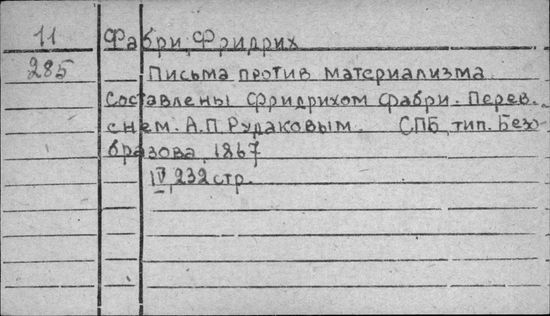 11
Фабри, Фридрих
285
Письма против материализма.
Составлены Фридрихом Фабри. Перев.
с нем. А.П. Рудаковым. СПБ, тип. Безо-
бразова, 1867
IV, 232 стр.